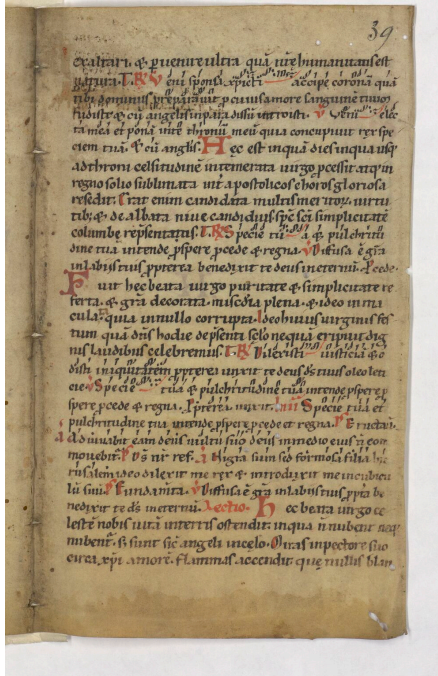 39
exaltari. & puenire ultra quā nr̄e humanitatis est
natura. T. R V eni sponsa xpicti accipe coronā quā
tibi dominus p̄parauit p cuius amore sanguinē tuum
fudiste & cū angelis in paradissū introisti. V Veni elec
ta mea et ponā inte thronū meū quia concupiuit rex spe
ciem tuā. & cū anglis. Hec est inquā dies in qua usq;
ad throni celsitudinē intemerata uirgo pcessit atq; in
regno solio sublimata inter apostolicos choros gloriosa
resedit. Erat enim candidata multis meritor. uirtu
tib; & de albata niue candidius spē sc̄i simplicitatē
columbe rep̄sentatus. T. R Specie tua & pulchritu
dine tua intende pspere pcede & regna. V Diffusa ē gr̄a
in labiis tuis ppterea benedixit te deus in eternū. Pcede.
Fuit hec beata uirgo puritate & simplicitate re
ferta. & gr̄a decorata. misc̄dia plena. & ideo inma
culata quia in nullo corrupta. Ideo huius uirginis fes
tum quā dn̄s hodie de p̄senti sclo nequā eripuit dig
nis laudibus celebremus. T. R Dilexisti iusticiā & o
disti iniquitatem ppterea unxit te deus ds̄ tuus oleo leti
cie V Specie tua & pulchritudine tuā intende pspere p
spere pcede & regna. Ppterea unxit. Specie tua et
pulchritudine tua intende pspere pcede et regna. P Eructauit.
Adiuuabit eam deus uultu suo deus in medio eius n̄ com
mouebit. P Ds̄ nr̄ ref. Nigra sum sed formosa filia hie
rusalem ideo dilexit me rex & introduxit me in cubicu
lū suū. P Fundamta. V Diffusa ē gr̄a in labiis tuis ppta be
nedixit te ds̄ in eternū. Lectio. Hec beata uirgo ce
lestē nobis uitā in terris ostendit in qua n̄ nubent neq;
nubent. s; sunt sic̄ angeli in celo. Quas in pectore suo
circa xpi amorē flammas accendit que nullis blan